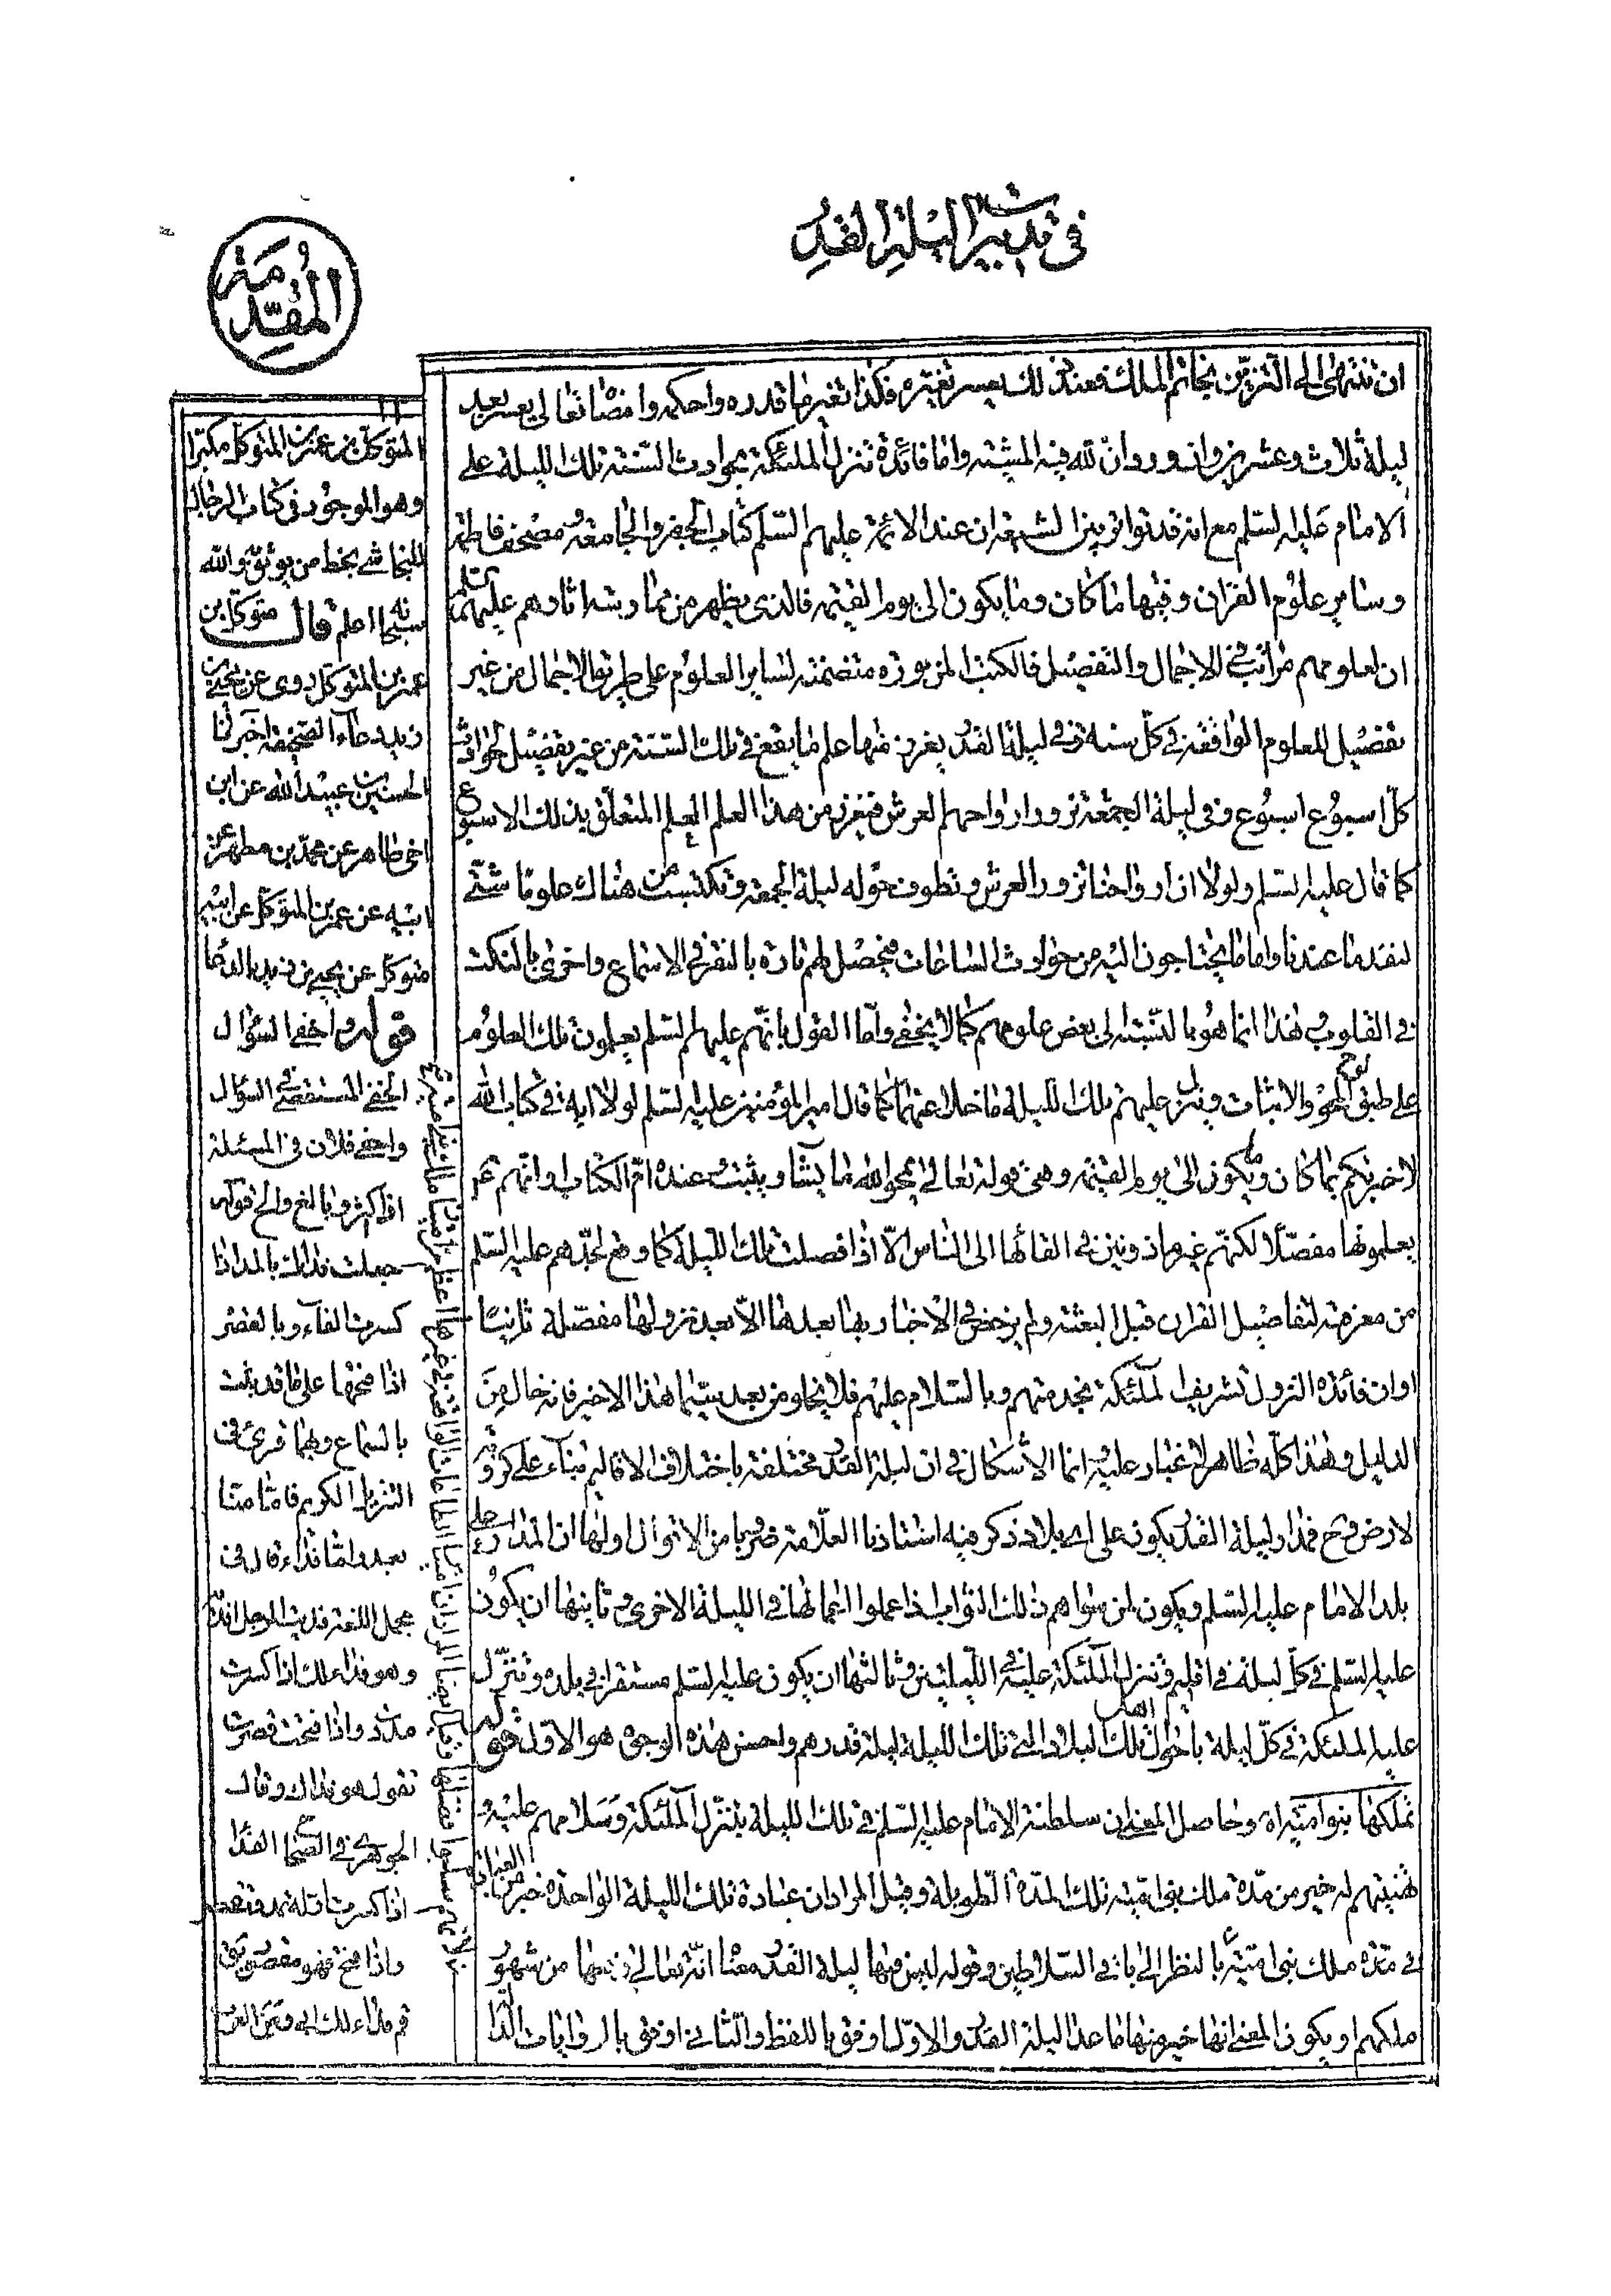 في تدبير ليلة القدر
المقدمة
ان تنتهى الى التزيّن بخاتم الملك فعند ذلك يعسر تغيّره فكذا تغير ما قدره واحكمه وامضا تعالى يعسر بعد
ليلة ثلاث وعشرين وان ورد ان لله فيه المشيّة واما فائدة تنزل الملئكة بحوادث السّنة تلك الليلة على
الامام عليه السّلم مع انه قد تواتر بين الشيعة ان عند الائمّة عليهم السّلم كتاب الجفر والجامعة ومصحف فاطمة
وساير علوم القران وفيها ما كان وما يكون الى يوم القيمة فالذى يظهر من اثارهم عليهم السلم
ان لعلومهم مراتب في الاجمال والتفصيل فالكتب المزبورة متضمنة لساير العلوم على طريق الاجمال من غير
تفصيل للعلوم الواقعة في كلّ سنة وفي ليلة القدر يفرق منها علم ما يقع في تلك السّنة من غير تفصيل حوادث
كلّ اسبوع اسبوع وفي ليلة الجمعة تزور ارواحهم العرش فيفرق من هذا العلم العلم المتعلّق بذلك الاسبوع
كما قال عليه السّلم ولولا ان ارواحنا تزور العرش وتطوف حوله ليلة الجمعة وتكتسب من هناك علوما شتّى
لنفد ما عندنا واما ما يحتاجون اليه من حوادث الساعات فيحصل لهم تارة بالنقر في الاسماع واخرى بالنكت
في القلوب وهذا انما هو بالنّسبة الى بعض علومهم كما لا يخفى وامّا القول بانّهم عليهم السّلم يعلمون تلك العلوم
على طبق لوح المحو والاثبات وينزل عليهم تلك الليلة ما خلا عنهما كما قال امير المؤمنين عليه السّلم لولا اية في كتاب الله
لاخبرتكم بما كان وما يكون الى يوم القيمة وهى قوله تعالى يمحو الله ما يشاء ويثبت وعنده امّ الكتاب وانّهم
يعلمونها مفصّلا لكنّهم غير ماذونين في القائها الى الناس الّا اذا فصلت تلك الليلة كما وقع لجدّهم عليه السّلم
من معرفته لتفاصيل القران قبل البعثة ولم يرخص في الاخبار بها بعدها الاّ بعد نزولها مفصّلة ثانيا
او ان فائدة النزول تشريف الملئكة بخدمتهم وبالسّلام عليهم فلا يخلو من بعد سيّما هذا الاخير فانه خال من
الدليل وهذا كلّه ظاهر لا غبار عليه وانما الاشكال في ان ليلة القدر مختلفة باختلاف الاقاليم بناء على كرويّة
الارض فمدار ليلة القدر يكون على اى بلاد ذكر فيه استاذنا العلّامة ضروبا من الاقوال اولها ان المدار على
بلد الامام عليه السّلم ويكون لمن سواهم ذلك الثواب اذا عملوا اعمالها في الليلة الاخرى وثانيها ان يكون
عليه السّلم في كلّ ليلة في اقليم وتنزل الملئكة عليه في اللّيلتين وثالثها ان يكون عليه السّلم مستقرا في بلده وتنزّل
عليه الملئكة في كلّ ليلة باحوال تلك البلاد التي تلك الليلة ليلة قدرهم واحسن هذه الوجوه هو الاوّل قوله
تملكها بنوا ميّة اه وحاصل المعنى ان سلطنة الامام عليه السّلم في تلك الليلة بتنزّل الملئكة وسلامهم عليه و
تهنيتهم له خير من مدّة ملك بنى اميّة تلك المدّة الطويلة وقيل المراد ان عبادة تلك الليلة الواحدة خير من العبادة
في مدّة ملك بنى اميّة بالنظر الى باقى السّلاطين وقوله ليس فيها ليلة القدر معناه انّه تعالى من شهور
ملكهم او يكون المعنى انها خير منها ما عدا ليلة القدر والاوّل اوفق باللفظ والثانى اوفق بالروايات
١٢
المتوكل بن عمر بن المتوكل مكبّرا
وهو الموجود في كتاب الرجال
للنجاشى بخط من يوثق به والله
سبحانه اعلم قال متوكّل بن
عمر بن المتوكل روى عن يحيى بن
زيد دعاء الصّحيفة اخبرنا
الحسين بن عبيد الله عن ابن
اخى طاهر عن محمّد بن مطهر عن
ابيه عن عمر بن المتوكّل عن ابيه
متوكّل عن يحيى بن زيد بالدعا
قوله واحفى السّؤال
الحفى المستقصى في السؤال
واحفى فلان في المسئلة
اذا اكثر وبالغ والح قوله
جعلت فداك بالمد اذا
كسرت الفاء وبالقصر
اذا فتحتها على ما قد ثبت
بالسّماع وبهما قرئ في
التنزيل الكريم فاما منّا
بعد وامّا فداء وقال في
مجمل اللغة فديت الرجل افديه
وهو فداءلك اذا كسرت
مددت واذا فتحت قصرت
تقول هو فداك وقال
الجوهرى في الصّحاح الفداء
اذا كسرت اوّله يمد ويقصر
واذا فتح فهو مقصور يق
قم فداء لك ابى ومن العرب